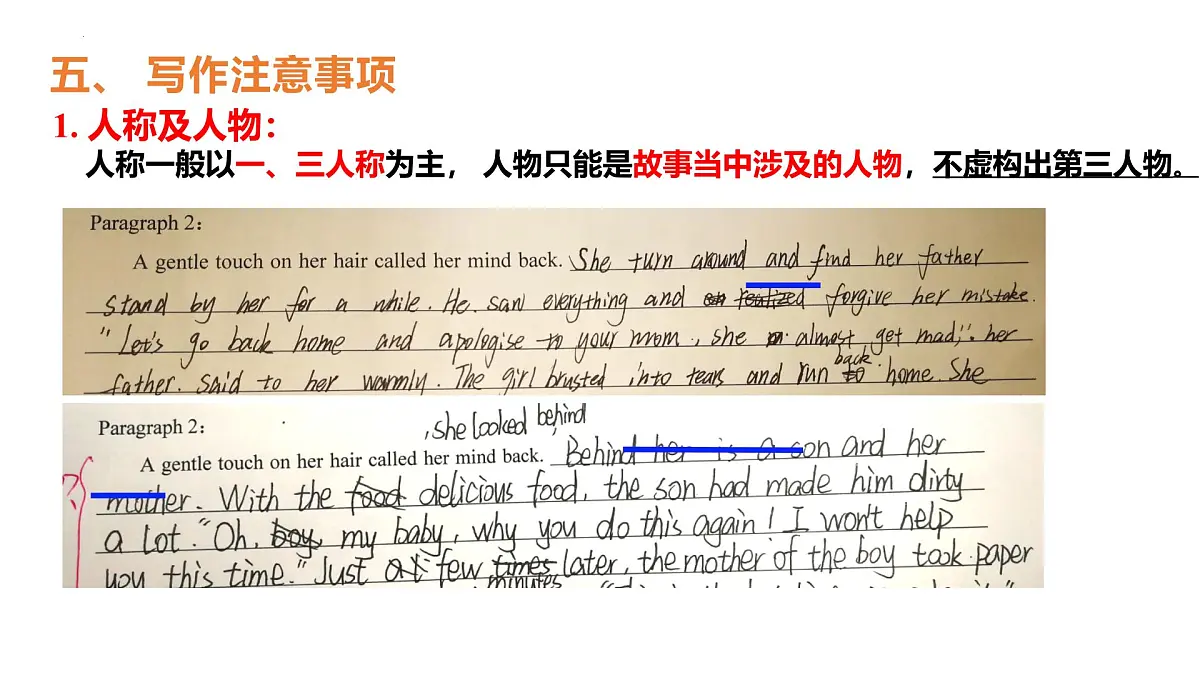 五、 写作注意事项
1. 人称及人物：
人称一般以一、三人称为主， 人物只能是故事当中涉及的人物，不虚构出第三人物。
Paragraph 2:
A gentle touch on her hair called her mind back. She turn around and find her father
stand by her for a while. He saw everything and realized forgive her mistake.
"Let's go back home and apologise to your mom, she almost get mad," her
father said to her warmly. The girl brusted into tears and run to back home. She
Paragraph 2:
, she looked behind
A gentle touch on her hair called her mind back. Behind her is a son and her
mother. With the food delicious food, the son had made him dirty
a lot. "Oh, boy, my baby, why you do this again! I won't help
you this time." Just at few times later, the mother of the boy took paper
minutes